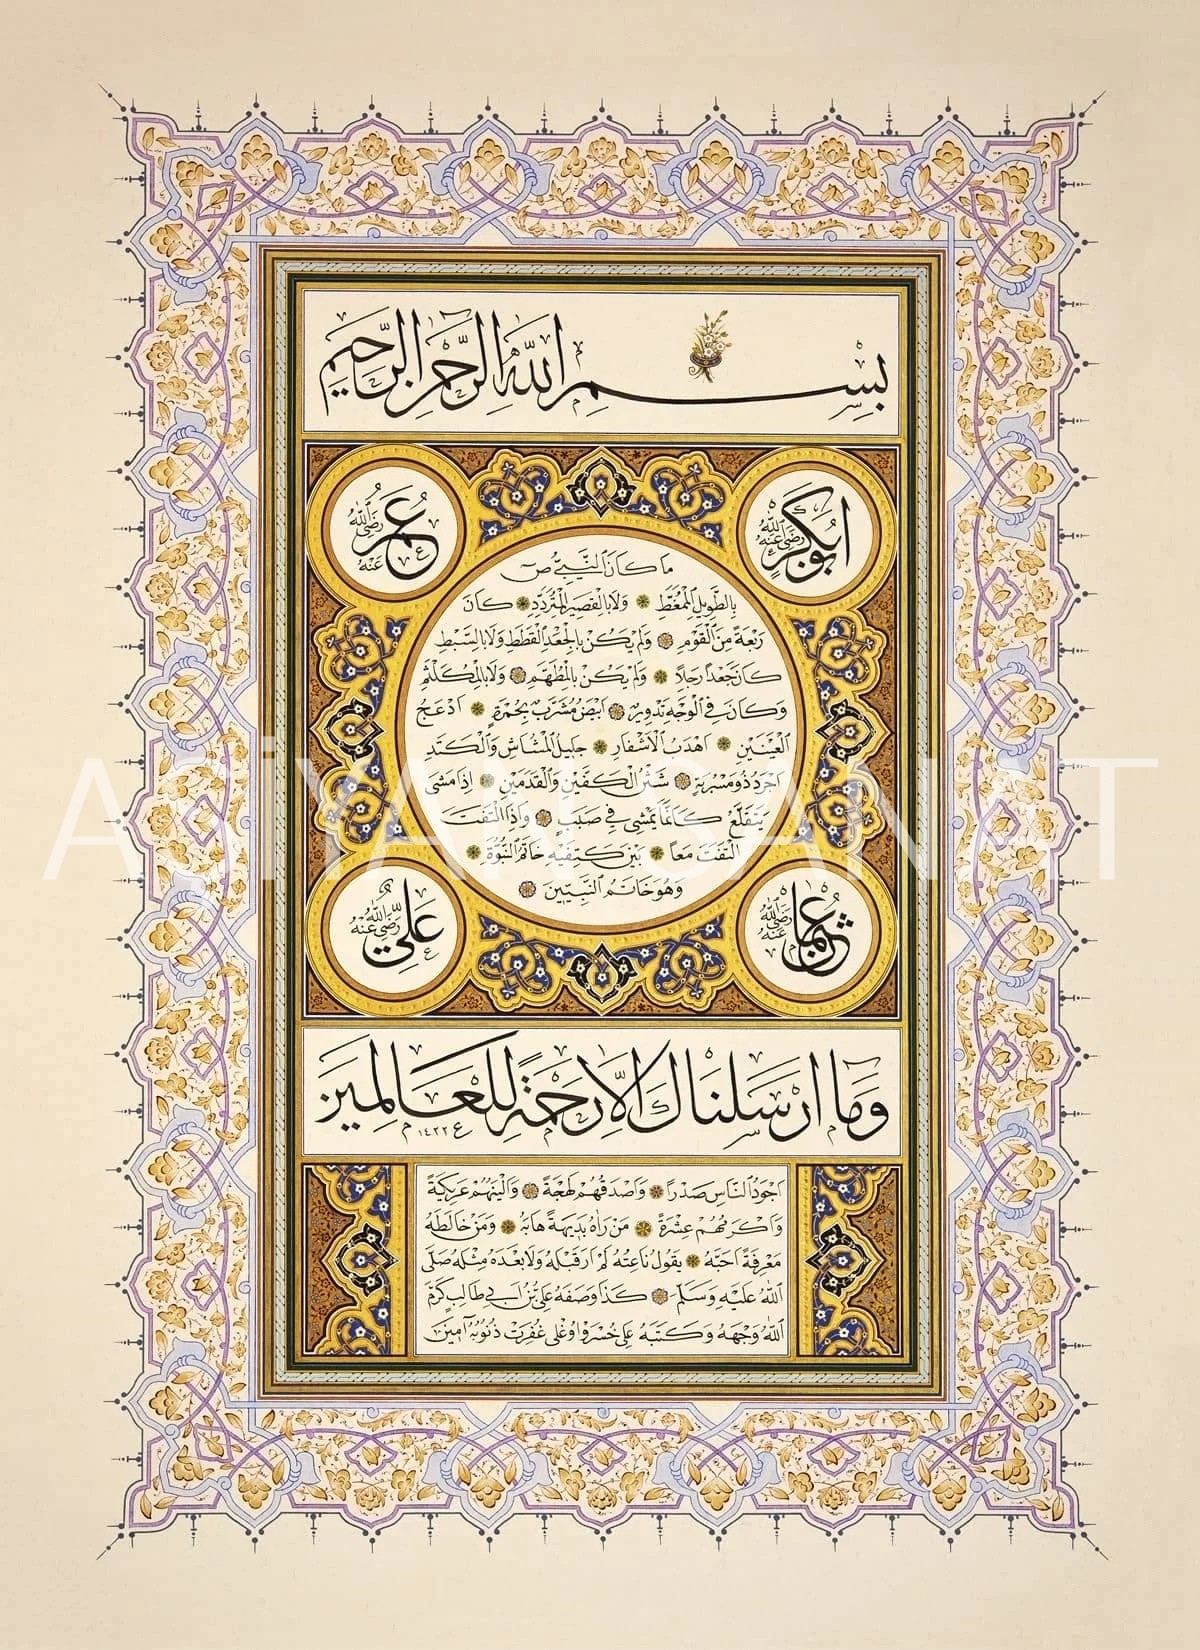 بِسْمِ اللهِ الرَّحْمٰنِ الرَّحِيمِ
ابُوبَكْرٍ رَضِيَ اللهُ عَنْهُ
عُمَرُ رَضِيَ اللهُ عَنْهُ
مَا كَانَ النَّبِيُّ ص
بِالطَّوِيلِ الْمُمَّغِطِ وَلَا بِالْقَصِيرِ الْمُتَرَدِّدِ كَانَ
رَبْعَةً مِنَ الْقَوْمِ وَلَمْ يَكُنْ بِالْجَعْدِ الْقَطَطِ وَلَا بِالسَّبْطِ
كَانَ جَعْدًا رَجِلًا وَلَمْ يَكُنْ بِالْمُطَهَّمِ وَلَا بِالْمُكَلْثَمِ
وَكَانَ فِي الْوَجْهِ تَدْوِيرٌ اَبْيَضُ مُشْرَبٌ بِحُمْرَةٍ اَدْعَجُ
الْعَيْنَيْنِ اَهْدَبُ الْاَشْفَارِ جَلِيلُ الْمُشَاشِ وَالْكَتَدِ
اَجْرَدُ ذُو مَسْرُبَةٍ شَثْنُ الْكَفَّيْنِ وَالْقَدَمَيْنِ اِذَا مَشَى
يَتَقَلَّعُ كَاَنَّمَا يَمْشِي فِي صَبَبٍ وَاِذَا الْتَفَتَ
الْتَفَتَ مَعًا بَيْنَ كَتِفَيْهِ خَاتَمُ النُّبُوَّةِ
وَهُوَ خَاتَمُ النَّبِيِّينَ
عُثْمَانُ رَضِيَ اللهُ عَنْهُ
عَلِيٌّ رَضِيَ اللهُ عَنْهُ
وَمَا اَرْسَلْنَاكَ اِلَّا رَحْمَةً لِلْعَالَمِينَ
١٤٢٢
اَجْوَدُ النَّاسِ صَدْرًا وَاَصْدَقُهُمْ لَهْجَةً وَاَلْيَنُهُمْ عَرِيكَةً
وَاَكْرَمُهُمْ عِشْرَةً مَنْ رَاٰهُ بَدِيهَةً هَابَهُ وَمَنْ خَالَطَهُ
مَعْرِفَةً اَحَبَّهُ يَقُولُ نَاعِتُهُ لَمْ اَرَ قَبْلَهُ وَلَا بَعْدَهُ مِثْلَهُ صَلَّى
اللهُ عَلَيْهِ وَسَلَّمَ كَذَا وَصَفَهُ عَلِيُّ بْنُ اَبِي طَالِبٍ كَرَّمَ
اللهُ وَجْهَهُ وَكَتَبَهُ عَلِي خُسْرَوْ اُوغْلِي غُفِرَتْ ذُنُوبُهُ آمِينَ
AŞİYAN SANAT